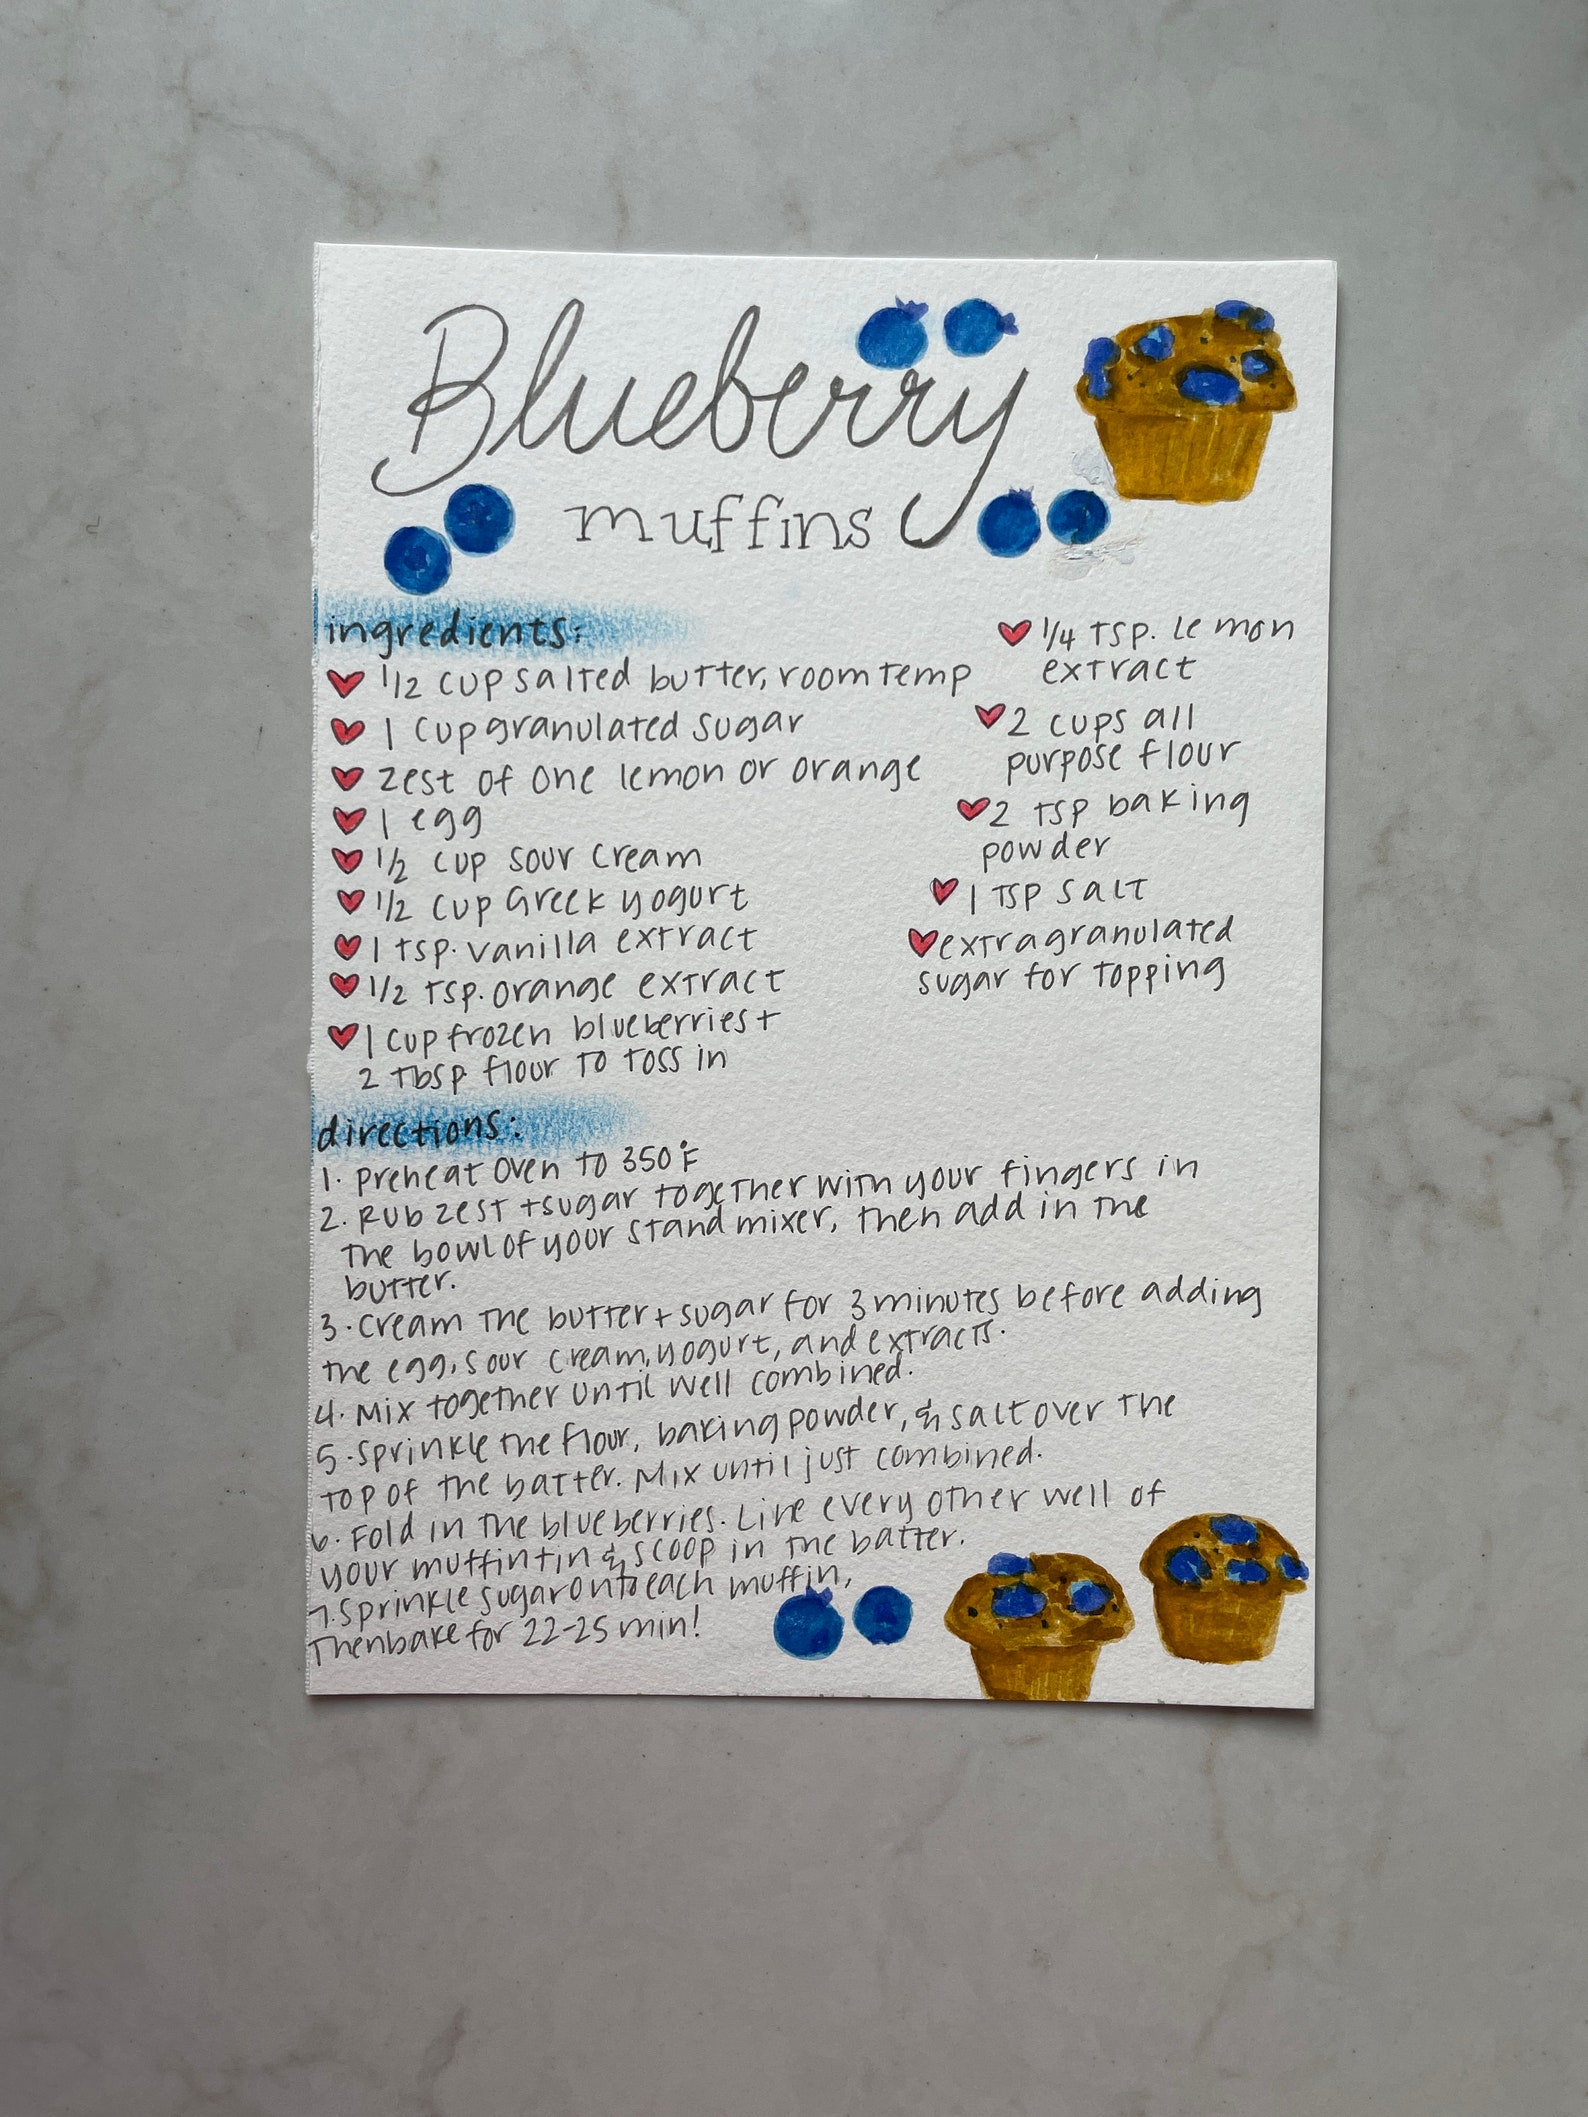 Blueberry
muffins
ingredients:
1/2 cup salted butter, room temp
1 cup granulated sugar
zest of one lemon or orange
1 egg
1/2 cup sour cream
1/2 cup Greek yogurt
1 tsp. vanilla extract
1/2 tsp. orange extract
1 cup frozen blueberries +
2 Tbsp flour to toss in
1/4 tsp. lemon
extract
2 cups all
purpose flour
2 tsp baking
powder
1 tsp salt
extra granulated
sugar for topping
directions:
1. Preheat oven to 350°F
2. Rub zest + sugar together with your fingers in
the bowl of your stand mixer, then add in the
butter.
3. Cream the butter + sugar for 3 minutes before adding
the egg, sour cream, yogurt, and extracts.
4. Mix together until well combined.
5. Sprinkle the flour, baking powder, & salt over the
top of the batter. Mix until just combined.
6. Fold in the blueberries. Line every other well of
your muffin tin & scoop in the batter.
7. Sprinkle sugar onto each muffin,
Then bake for 22-25 min!